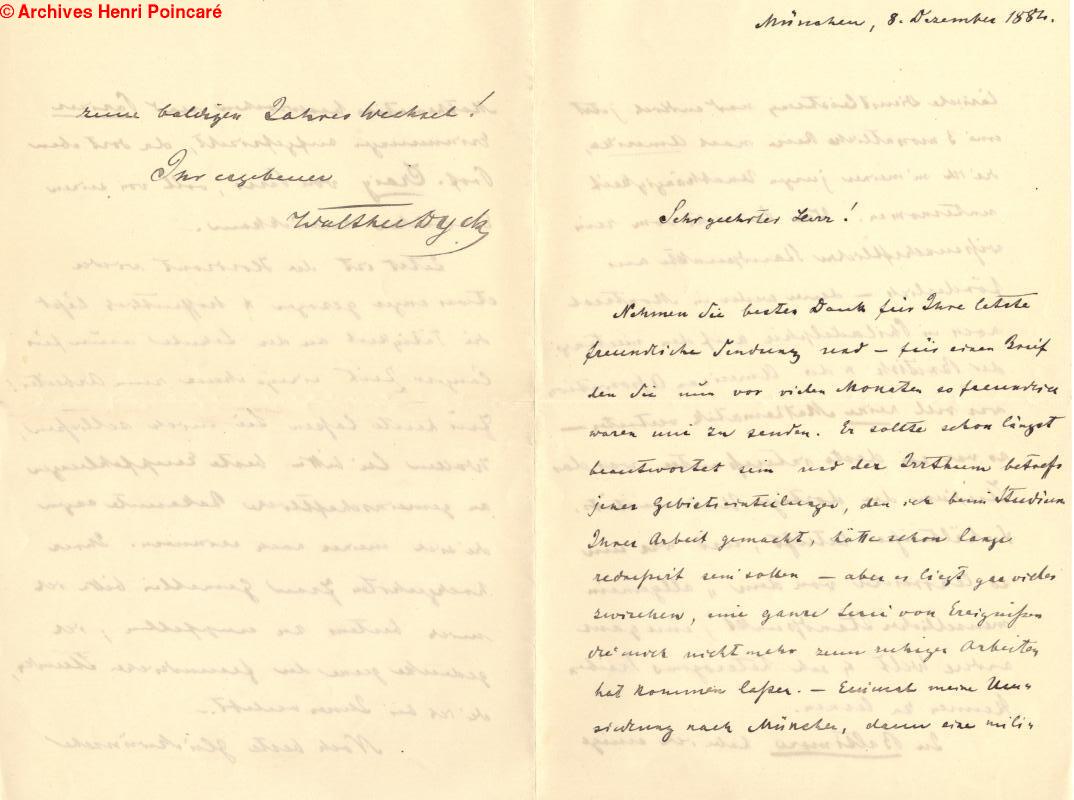 © Archives Henri Poincaré
München, 8. Dezember 1884.
Sehr geehrter Herr!
Nehmen Sie besten Dank für Ihre letzte
freundliche Sendung und – für einen Brief
den Sie nun vor vielen Monaten so freundlich
waren mir zu senden. Er sollte schon längst
beantwortet sein und der Irrthum betreffs
jener Gebietseinteilungen, den ich beim Studium
Ihrer Arbeit gemacht, hätte schon lange
sein sollen – aber es liegt gar vieles
zwischen, eine ganze Serie von Ereignißen
die mich nicht mehr zum ruhigen Arbeiten
hat kommen laßen. – Einmal meine Um-
siedlung nach München, dann eine mili-
zum baldigen Jahres Wechsel!
Ihr ergebener
Walther Dyck